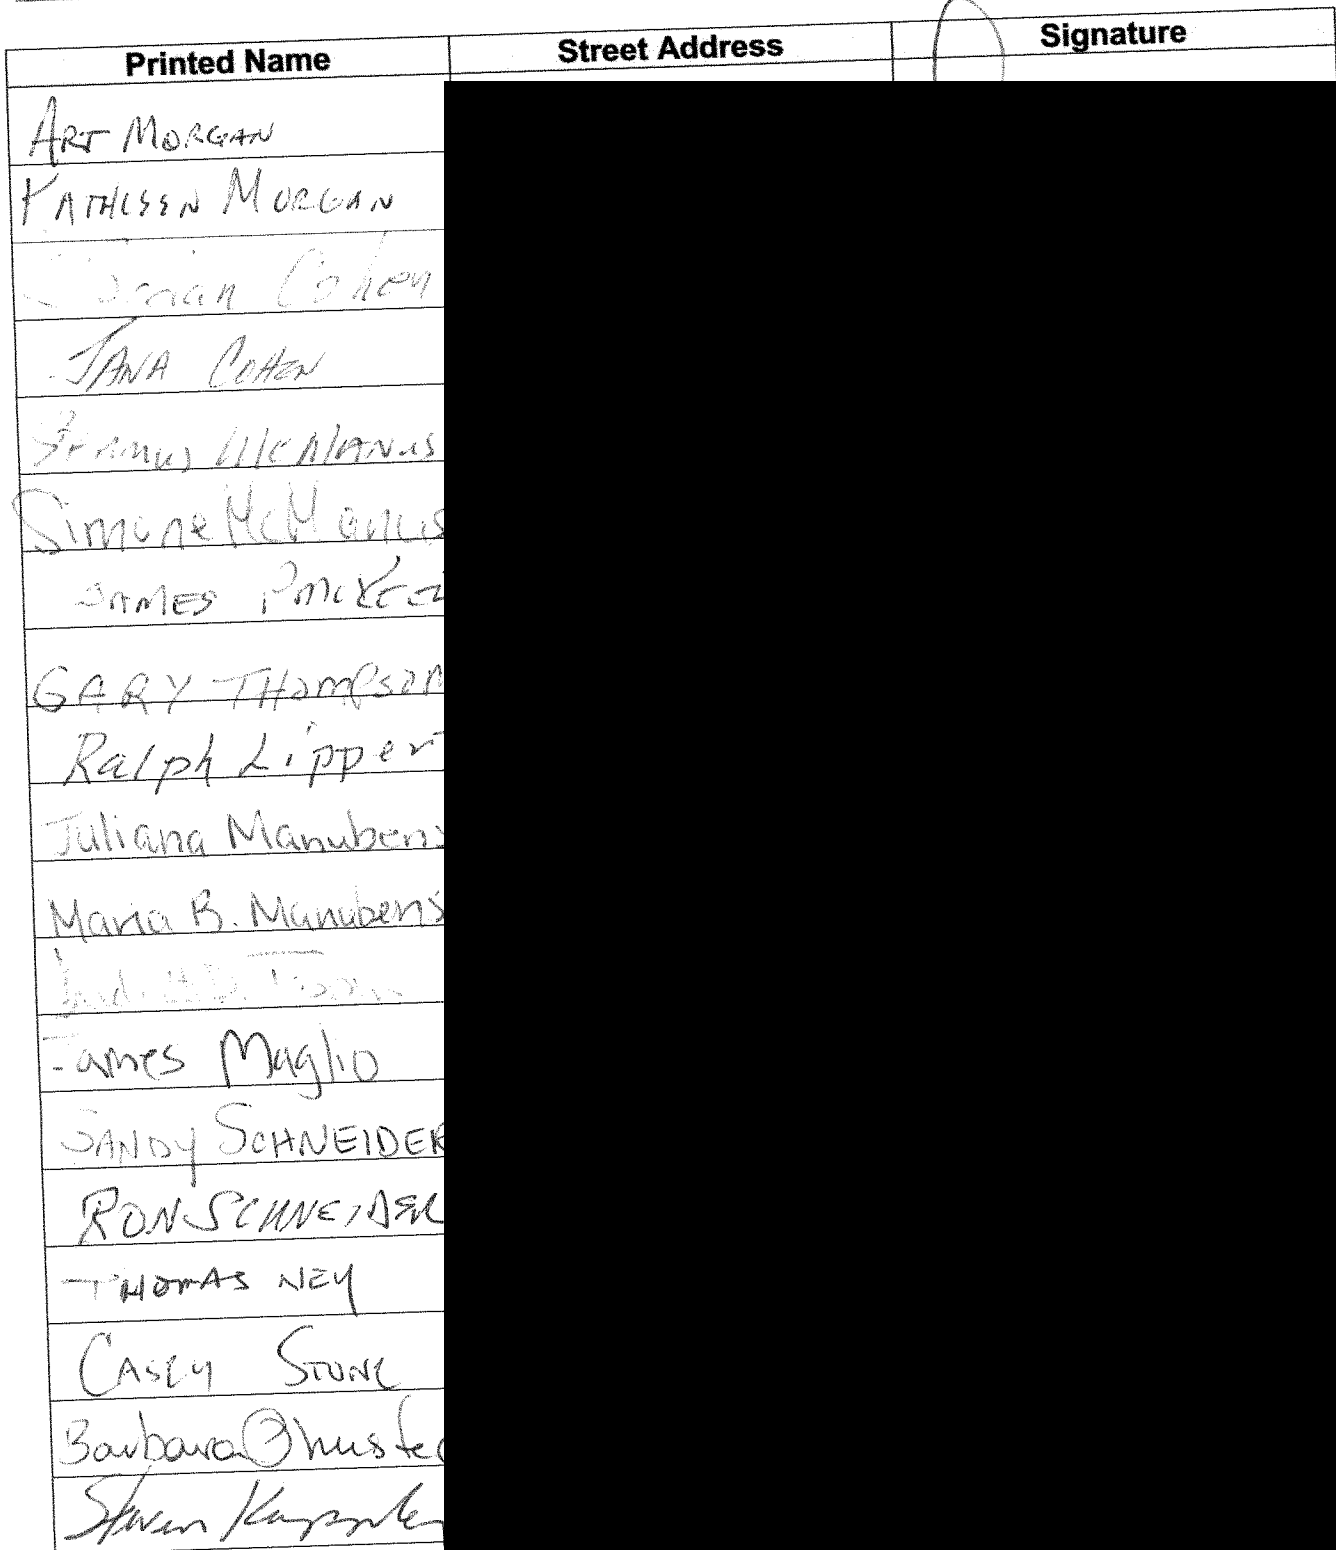 Printed Name Street Address Signature
ART MORGAN
KATHLEEN MORGAN
Cohen
JANA COHEN
McMANUS
Simone McManus
JAMES
GARY THOMPSON
Ralph Lipper
Juliana Manubens
Maria B. Manubens
James Maglio
SANDY SCHNEIDER
RON SCHNEIDER
THOMAS NEY
CASEY STONE
Barbara
Steven